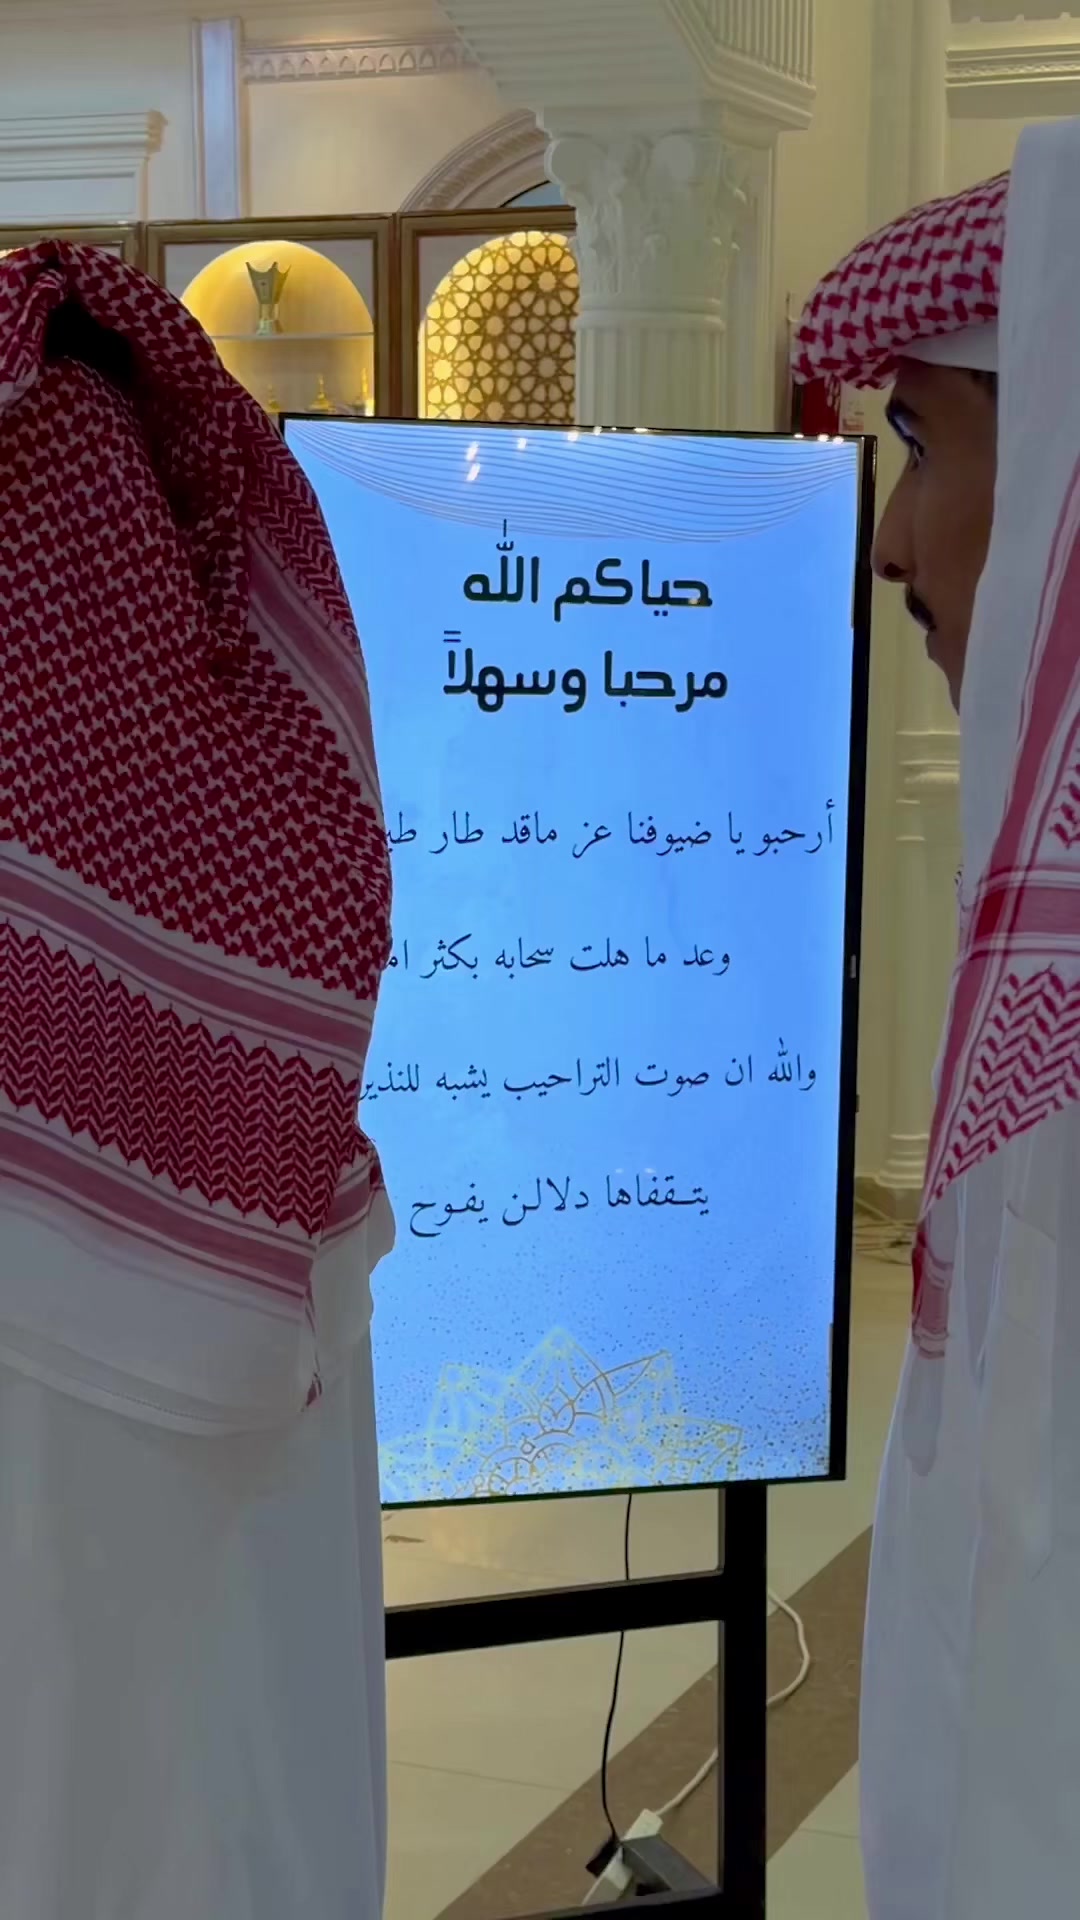 حياكم الله
مرحبا وسهلاً
أرحبو يا ضيوفنا عز ماقد طار
وعد ما هلت سحابه بكثر
والله ان صوت التراحيب يشبه للنذير
يتـقفاها دلالـن يفـوح